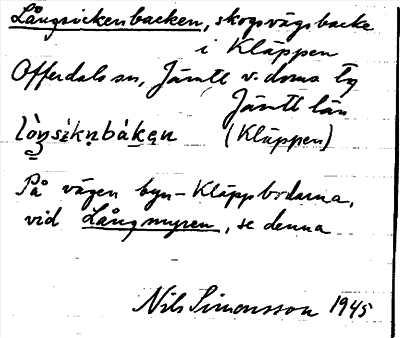 Långsickenbacken, skogsvägsbacke
i Kläppen
Offerdals sn, Jämtl v. doms tg
Jämtl län
lòŋsìkn̥bàkən (Kläppen)
På vägen byn-Kläppbodarna,
vid Långmyren, se denna
Nils Simonsson 1945